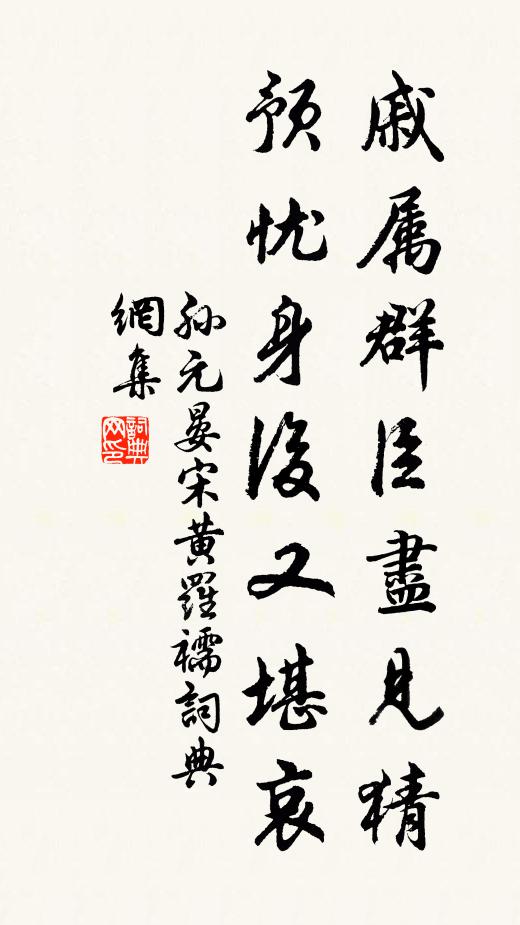 戚属群臣盡見猜
預忧身後又堪哀
孙元晏宋黄羅襦詞典
網集
詞典
网印